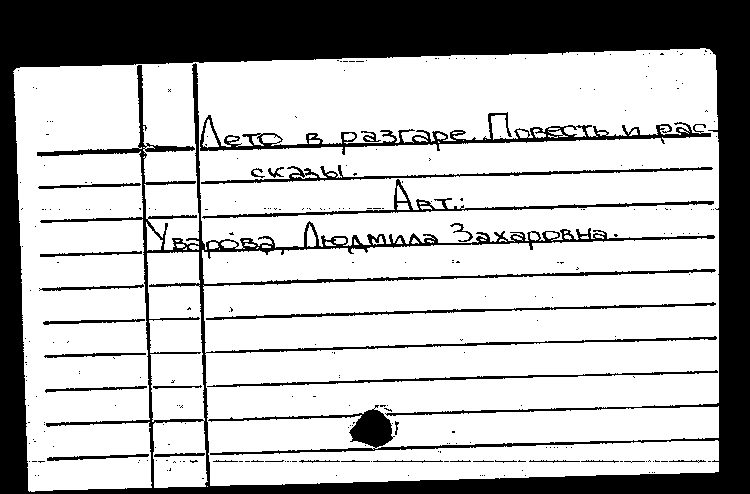 Лето в разгаре. Повесть и рас-
сказы.
Авт.:
Уварова, Людмила Захаровна.